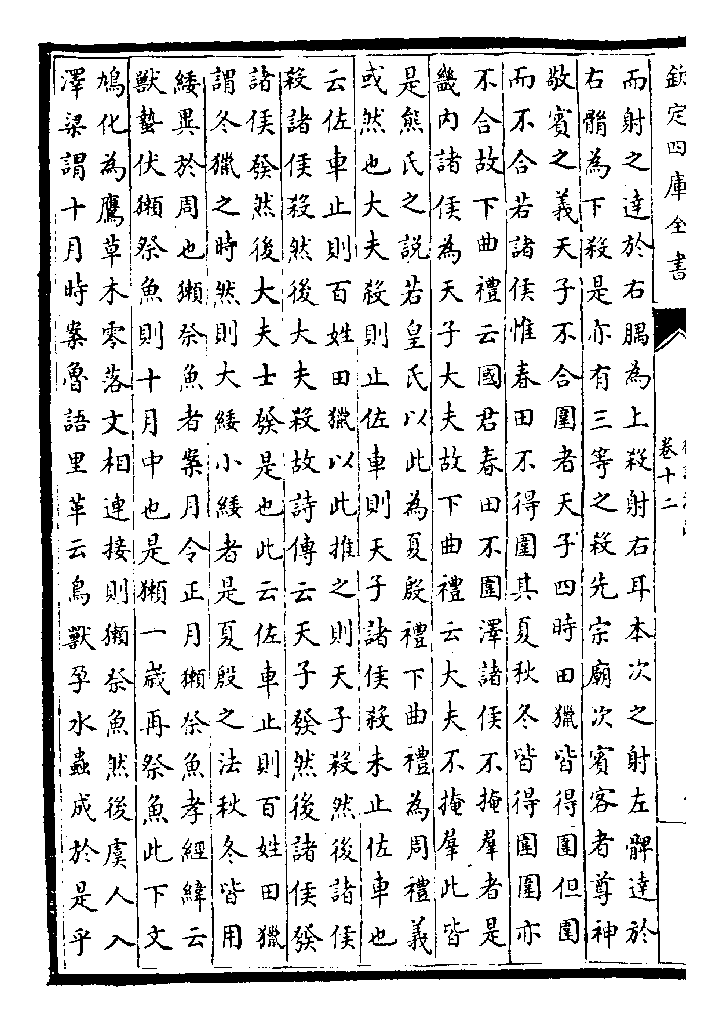 欽定四庫全書
卷十二
而射之達於右腢為上殺射右耳本次之射左髀達於
右䯚為下殺是亦有三等之殺先宗廟次賓客者尊神
敬賓之義天子不合圍者天子四時田獵皆得圍但圍
而不合若諸侯惟春田不得圍其夏秋冬皆得圍圍亦
不合故下曲禮云國君春田不圍澤諸侯不掩羣者是
畿內諸侯為天子大夫故下曲禮云大夫不掩羣此皆
是熊氏之説若皇氏以此為夏殷禮下曲禮為周禮義
或然也大夫殺則止佐車則天子諸侯殺未止佐車也
云佐車止則百姓田獵以此推之則天子殺然後諸侯
殺諸侯殺然後大夫殺故詩傳云天子發然後諸侯發
諸侯發然後大夫士發是也此云佐車止則百姓田獵
謂冬獵之時然則大綏小綏者是夏殷之法秋冬皆用
綏異於周也獺祭魚者案月令正月獺祭魚孝經緯云
獸蟄伏獺祭魚則十月中也是獺一歲再祭魚此下文
鳩化為鷹草木零落文相連接則獺祭魚然後虞人入
澤梁謂十月時案魯語里革云鳥獸孕水蟲成於是乎